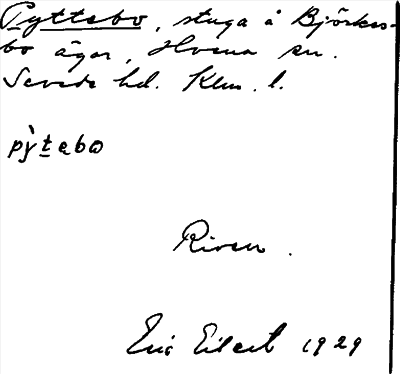 Pyttebo, stuga å Björkes-
bo ägor, Hvena sn.
Sevede hd. Klm. l.
pỳtebo
Riven.
Eric Eilert 1929